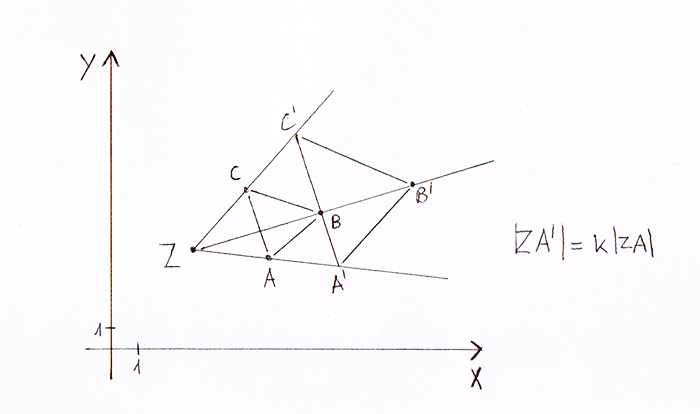 Y
C'
C
B'
B
Z
A
A'
|ZA'| = k|ZA|
1
1
X